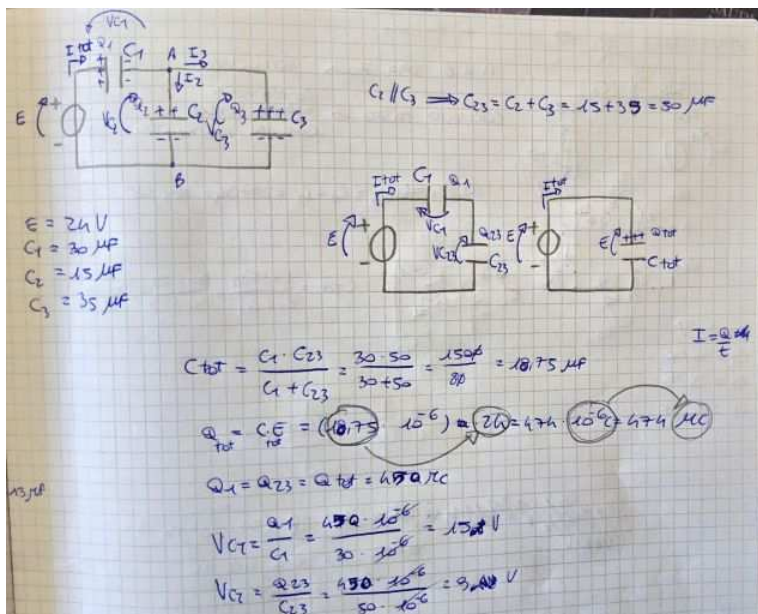 VC1
Itot Q1 C1 A I3
I2
E + - VC2 Q2 ++ C2 VC3 Q3 +++ C3
B
C2 // C3 ⟹ C23 = C2 + C3 = 15 + 35 = 50 μF
E = 24 V
C1 = 30 μF
C2 = 15 μF
C3 = 35 μF
Itot C1 Q1
E + - VC1 VC23 Q23 C23
Itot
E + - E +++ Qtot Ctot
I = Q/t
Ctot = C1 · C23 / C1 + C23 = 30 · 50 / 30 + 50 = 1500 / 80 = 18,75 μF
Qtot = Ctot · E = (18,75 · 10^-6) · 24 = 474 · 10^-6 C = 474 μC
Q1 = Q23 = Qtot = 450 μC
13 μF
VC1 = Q1 / C1 = 450 · 10^-6 / 30 · 10^-6 = 15 V
VC2 = Q23 / C23 = 450 · 10^-6 / 50 · 10^-6 = 9 V